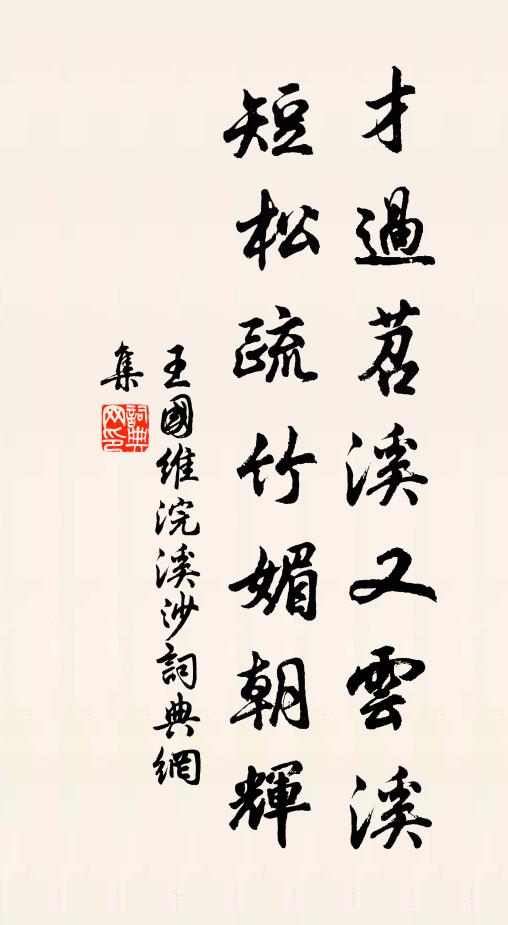 才過苕溪又雲溪
短松疏竹媚朝輝
王國維浣溪沙詞典網
集
詞典網印